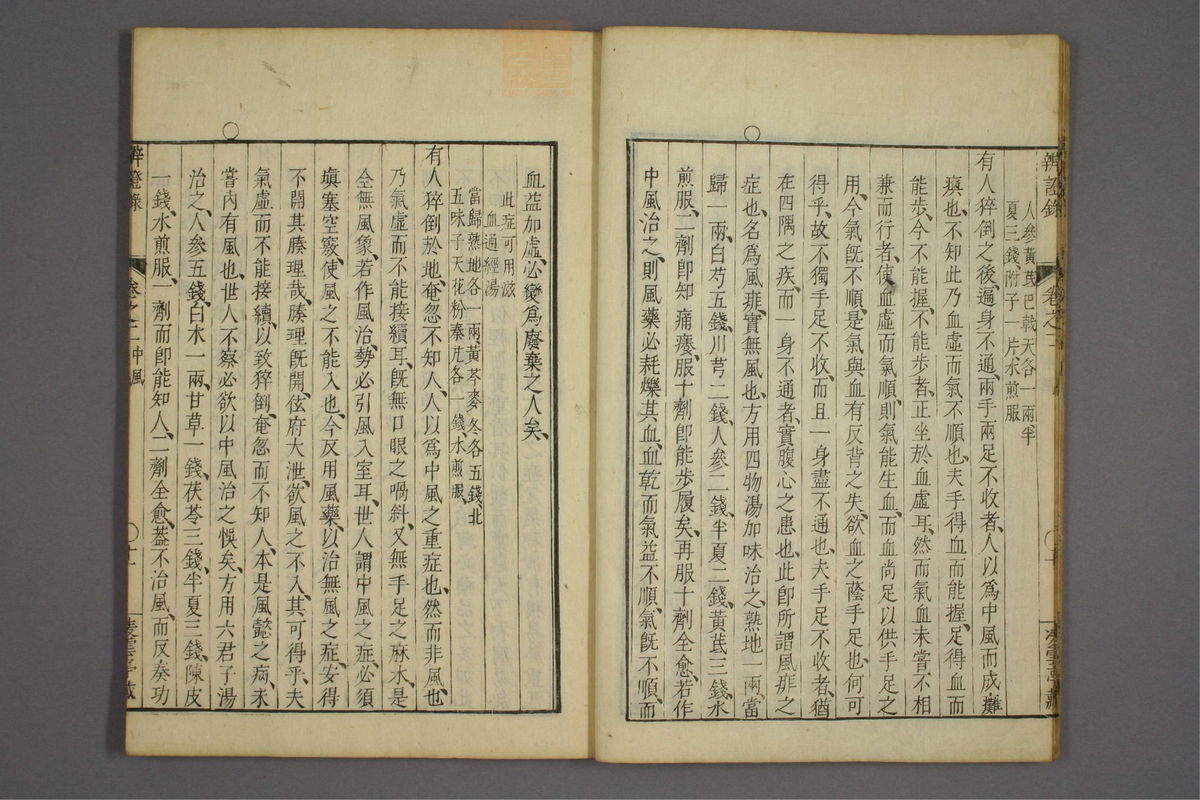 辨證錄
卷之二
人參黃茋巴戟天各一兩半
夏三錢附子一片水煎服
有人猝倒之後遍身不通兩手兩足不收者人以爲中風而成癱
瘓也不知此乃血虛而氣不順也夫手得血而能握足得血而
能步今不能握不能步者正坐於血虛耳然而氣血未嘗不相
兼而行者使血虛而氣順則氣能生血而血尚足以供手足之
用今氣既不順是氣與血有反背之失欲血之蔭手足也何可
得乎故不獨手足不收而且一身盡不通也夫手足不收者猶
在四隅之疾而一身不通者實腹心之患也此卽所謂風痱之
症也名爲風痱實無風也方用四物湯加味治之熟地一兩當
歸一兩白芍五錢川芎二錢人參二錢半夏二錢黃茋三錢水
煎服二劑卽知痛癢服十劑卽能步履矣再服十劑全愈若作
中風治之則風藥必耗爍其血血乾而氣益不順氣既不順而
血益加虛必變爲廢棄之人矣
此症可用滋
血通經湯
當歸熟地各一兩黃芩麥冬各五錢北
五味子天花粉秦艽各一錢水煎服
有人猝倒於地奄忽不知人人以爲中風之重症也然而非風也
乃氣虛而不能接續耳既無口眼之喎斜又無手足之麻木是
全無風象若作風治勢必引風入室耳世人謂中風之症必須
塡塞空竅使風之不能入也今反用風藥以治無風之症安得
不開其腠理哉腠理既開俍府大泄欲風之不入其可得乎夫
氣虛而不能接續以致猝倒奄忽而不知人本是風懿之病未
嘗內有風也世人不察必欲以中風治之悞矣方用六君子湯
治之人參五錢白朮一兩甘草一錢茯苓三錢半夏三錢陳皮
一錢水煎服一劑而卽能知人二劑全愈葢不治風而反奏功
辨證錄
卷之二中風
十一
凌雲亭藏